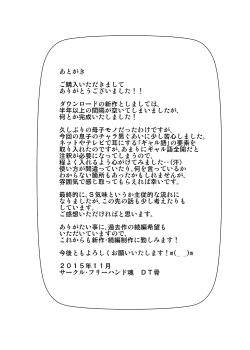 あとがき
ご購入いただきまして
ありがとうございました！！
ダウンロードの新作としましては、
半年以上の間隔が空いてしまいましたが、
何とか完成いたしました！
久しぶりの母子モノだったわけですが、
今回の息子のチャラ男ぐあいに少し苦心しました。
ネットやテレビで耳にする「ギャル語」の要素を
取り入れたのですが、あまりにギャル語全開だと
注釈が必要になってしまうので、
程よく入れるよう心がけてみました…（汗）
使い方が間違っていたり、何を言っているか
わからない箇所もあったかもしれませんが、
雰囲気で感じ取ってもらえれば幸いです。
最終的に、Ｓ気味というか主従的な流れに
なりましたが、この先の話も少し考えたりも
しています。
ご感想いただければと思います。
ありがたい事に、過去作の続編希望も
いただいていますので、
これからも新作・続編制作に勤しみます！
今後ともよろしくお願いいたします！m(_ _)m
２０１５年１１月
サークル・フリーハンド魂　ＤＴ骨